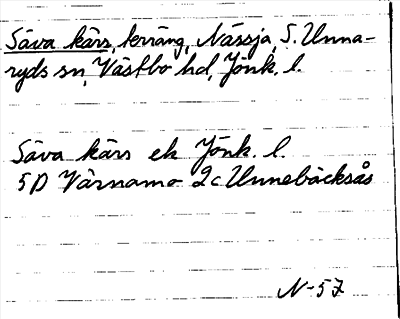 Säva kärs, terräng, Nässja, S. Unna-
ryds sn, Västbo hd, Jönk. l.
Säva kärs ek Jönk. l.
5D Värnamo 2c Unnebäcksås
N-57